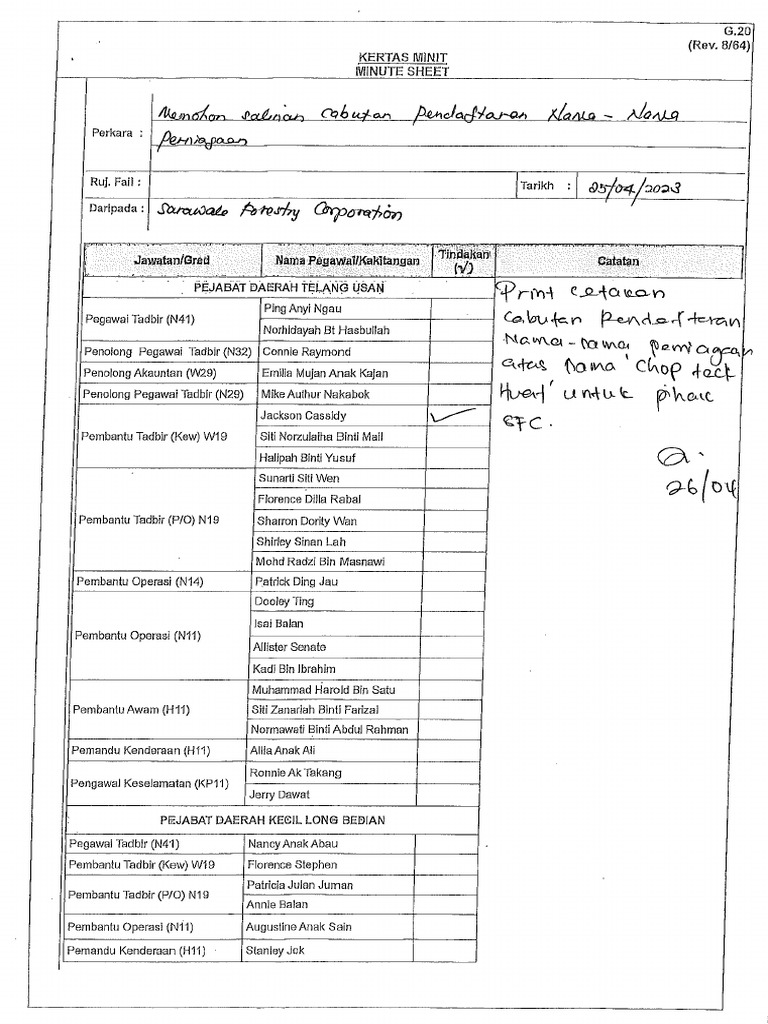 G.20
(Rev. 8/64)
KERTAS MINIT
MINUTE SHEET
Perkara :
Memohon salinan cabutan Pendaftaran Nama - Nama
Perniagaan
Ruj. Fail :
Tarikh : 25/04/2023
Daripada : Sarawak Forestry Corporation
Jawatan/Gred Nama Pegawai/Kakitangan Tindakan (√) Catatan
PEJABAT DAERAH TELANG USAN
Pegawai Tadbir (N41) Ping Anyi Ngau
Norhidayah Bt Hasbullah
Penolong Pegawai Tadbir (N32) Connie Raymond
Penolong Akauntan (W29) Emilia Mujan Anak Kajan
Penolong Pegawai Tadbir (N29) Mike Authur Nakabok
Pembantu Tadbir (Kew) W19 Jackson Cassidy ✓
Siti Norzulaiha Binti Mail
Halipah Binti Yusuf
Pembantu Tadbir (P/O) N19 Sunarti Siti Wen
Florence Dilla Rabal
Sharron Dority Wan
Shirley Sinan Lah
Mohd Radzi Bin Masnawi
Pembantu Operasi (N14) Patrick Ding Jau
Pembantu Operasi (N11) Dooley Ting
Isai Balan
Allister Senate
Kadi Bin Ibrahim
Pembantu Awam (H11) Muhammad Harold Bin Satu
Siti Zanariah Binti Farizal
Normawati Binti Abdul Rahman
Pemandu Kenderaan (H11) Alila Anak Ali
Pengawal Keselamatan (KP11) Ronnie Ak Takang
Jerry Dawat
PEJABAT DAERAH KECIL LONG BEDIAN
Pegawai Tadbir (N41) Nancy Anak Abau
Pembantu Tadbir (Kew) W19 Florence Stephen
Pembantu Tadbir (P/O) N19 Patricia Julan Juman
Annie Balan
Pembantu Operasi (N11) Augustine Anak Sain
Pemandu Kenderaan (H11) Stanley Jok
Print cetakan
Cabutan Pendaftaran
Nama-nama perniagaan
atas nama 'Chop teck
Huat' untuk pihak
SFC.
26/04